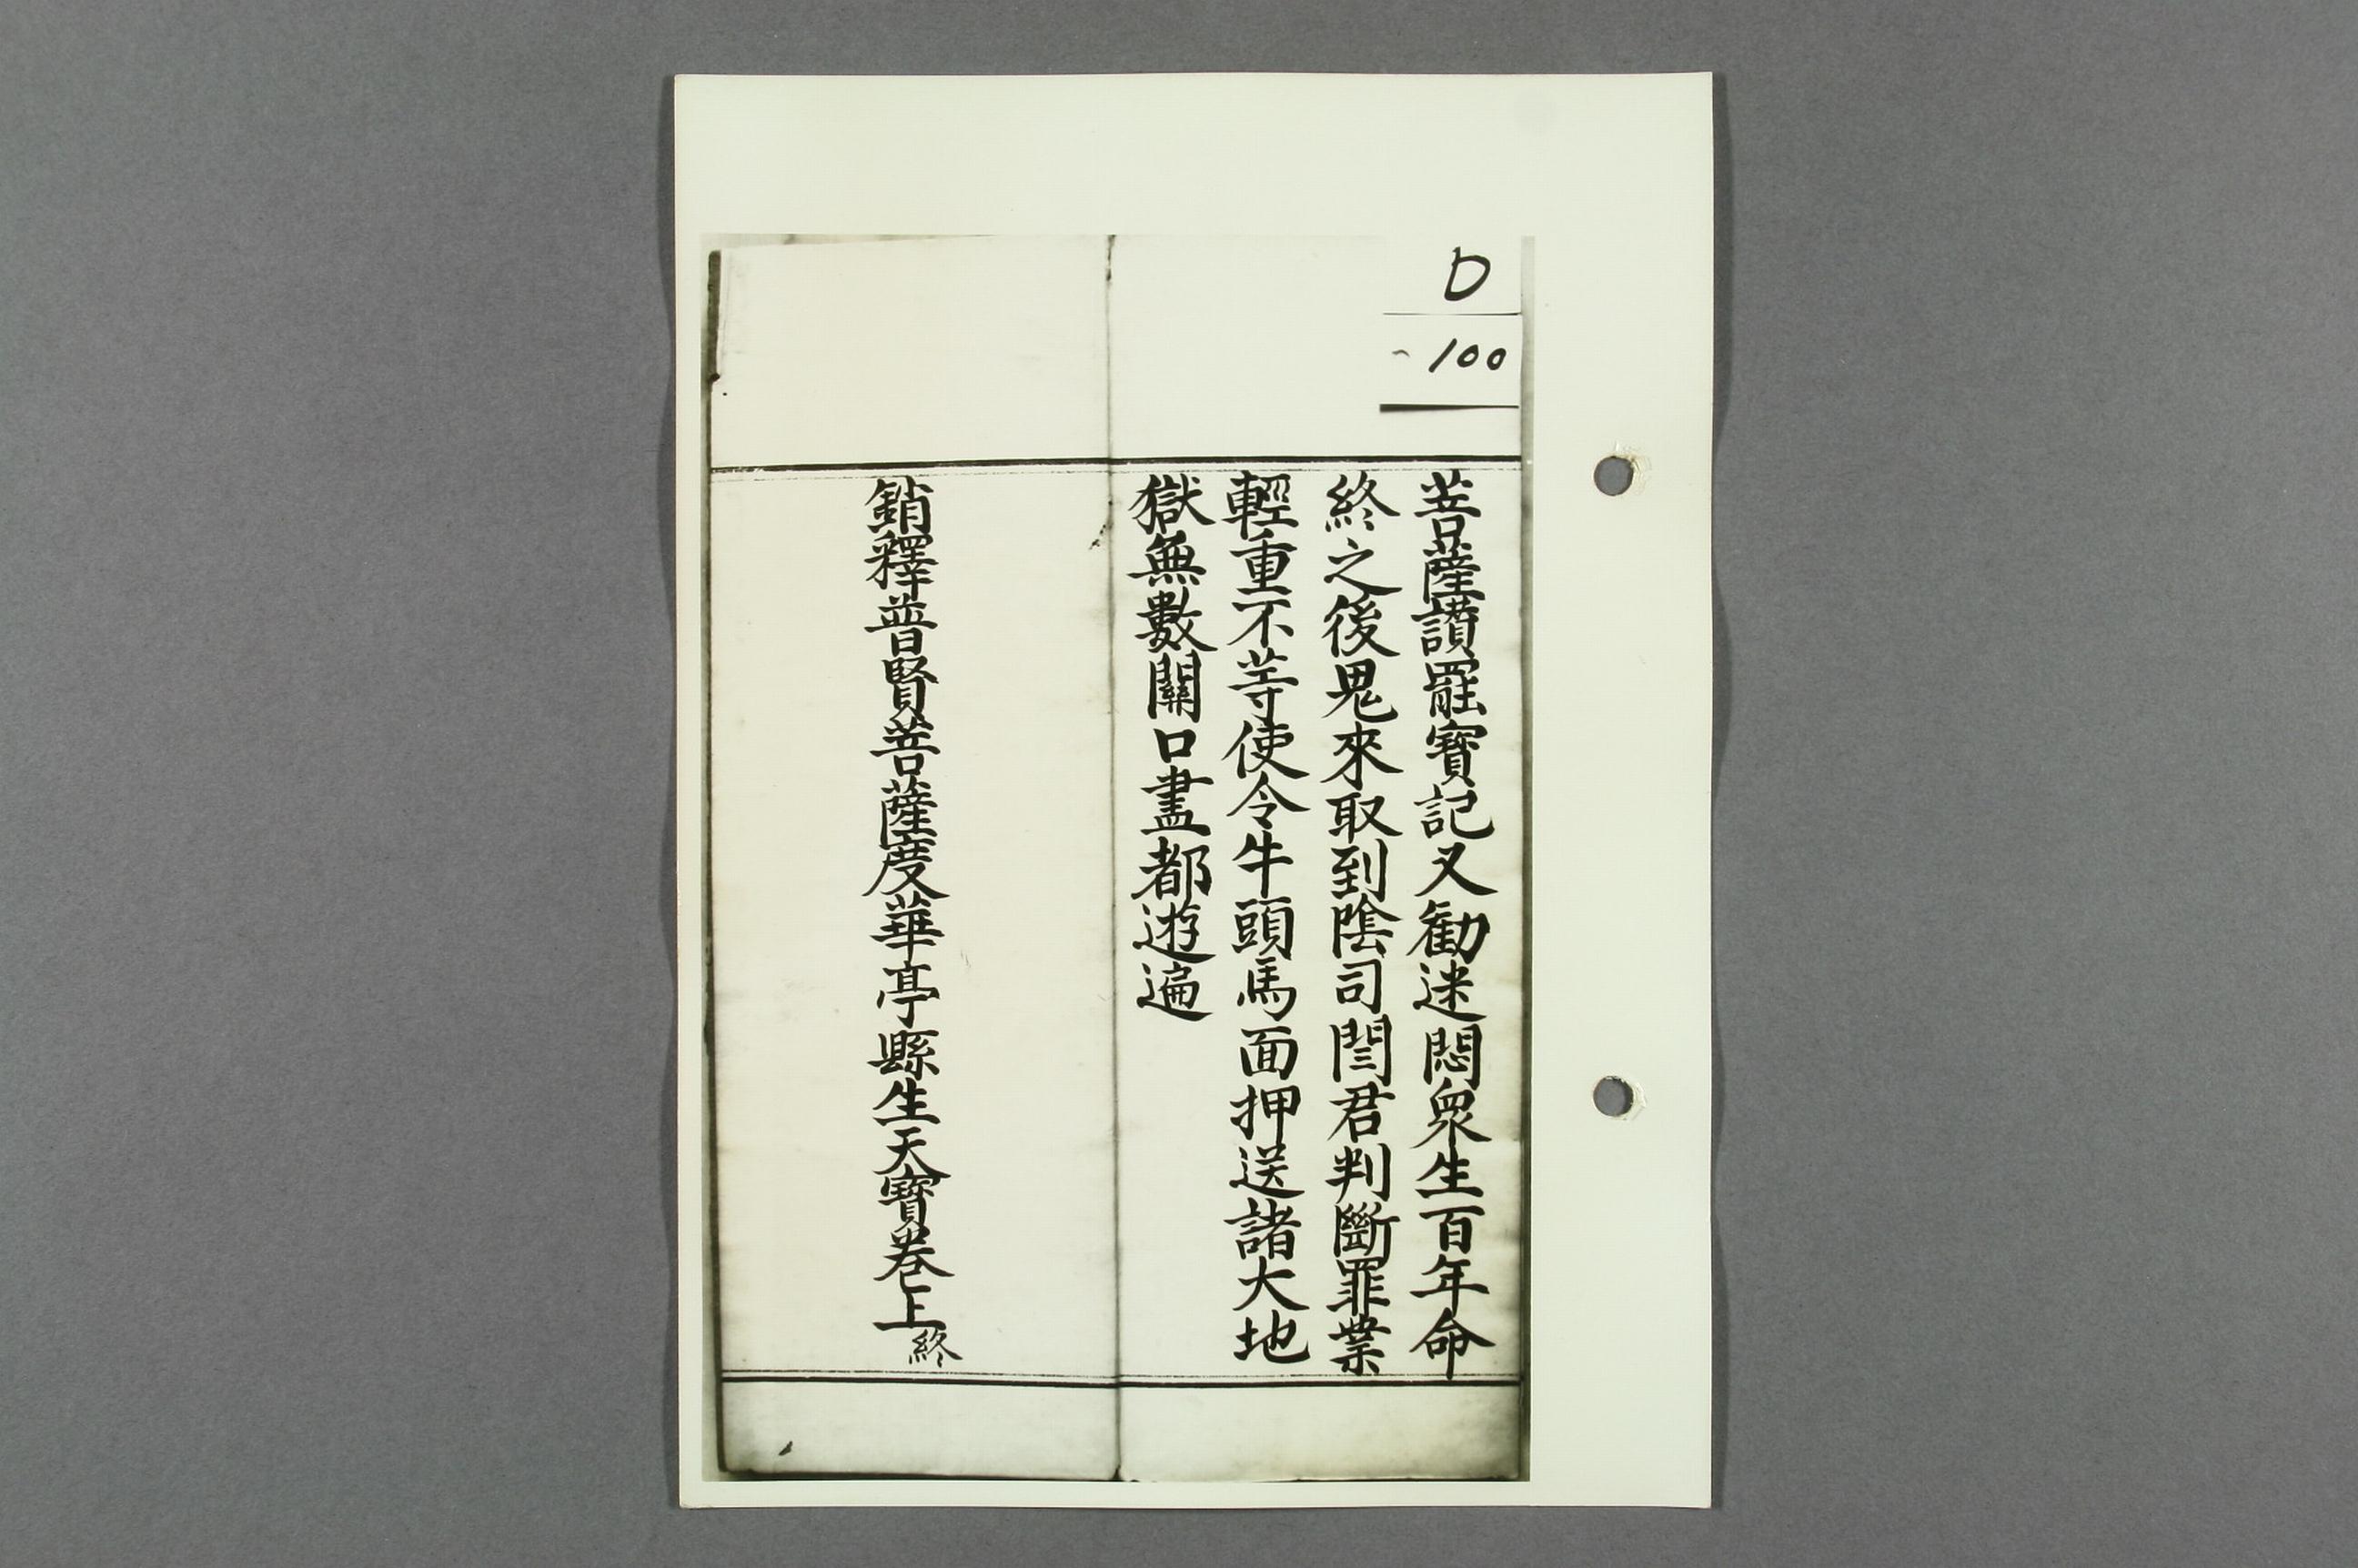 D
100
菩薩讚罷寳記又勸迷悶衆生百年命
終之後鬼來取到陰司閆君判斷罪業
輕重不等使令牛頭馬面押送諸大地
獄無數關口盡都遊遍
銷釋普賢菩薩度華亭縣生天寳卷上終